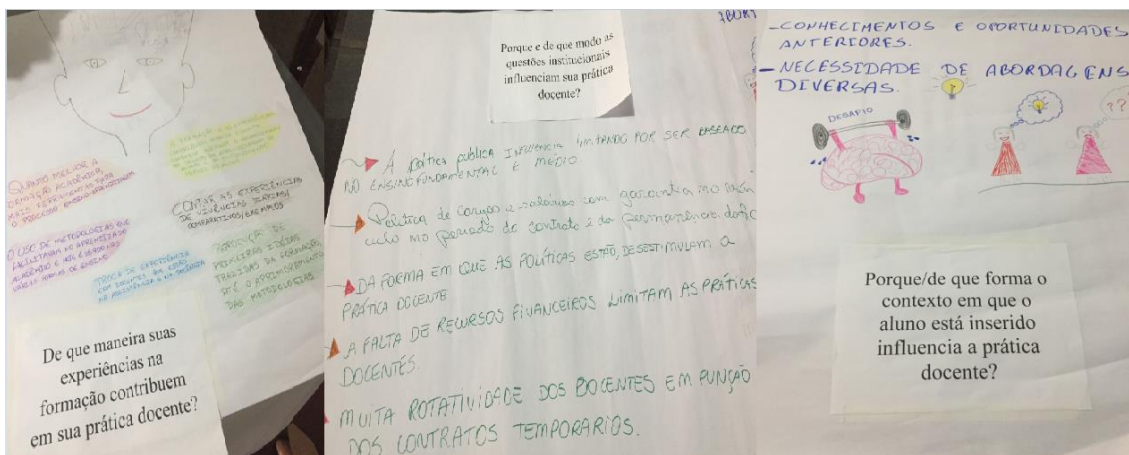 QUANTO MELHOR A
FORMAÇÃO ACADÊMICA
MAIS FERRAMENTAS PARA
O PROCESSO ENSINO-APRENDIZAGEM
O USO DE METODOLOGIAS QUE
FACILITARAM NO APRENDIZADO
ACADÊMICO E HOJE
CONTAR AS EXPERIÊNCIAS
DE VIVÊNCIAS DIÁRIAS/
COMPARATIVOS/EXEMPLOS
TROCA DE EXPERIÊNCIA
COM DOCENTES
NA ASSISTÊNCIA E NA DOCÊNCIA
REPRODUÇÃO DE
PRIMEIRAS IDEIAS
TRAZIDAS DA FORMAÇÃO,
ATÉ O APRIMORAMENTO
DAS METODOLOGIAS
De que maneira suas
experiências na
formação contribuem
em sua prática docente?
Porque e de que modo as
questões institucionais
influenciam sua prática
docente?
A política pública INFLUENCIA LIMITANDO POR SER BASEADO
NO ENSINO FUNDAMENTAL E MÉDIO
Política de cargos e salários com garantia no
no período do contrato e da permanência
DA FORMA EM QUE AS POLÍTICAS ESTÃO, DESESTIMULAM A
PRÁTICA DOCENTE
A FALTA DE RECURSOS FINANCEIROS LIMITAM AS PRÁTICAS
DOCENTES.
MUITA ROTATIVIDADE DOS DOCENTES EM FUNÇÃO
DOS CONTRATOS TEMPORARIOS.
- CONHECIMENTOS E OPORTUNIDADES
ANTERIORES.
- NECESSIDADE DE ABORDAGENS
DIVERSAS.
DESAFIO
??
Porque/de que forma o
contexto em que o
aluno está inserido
influencia a prática
docente?